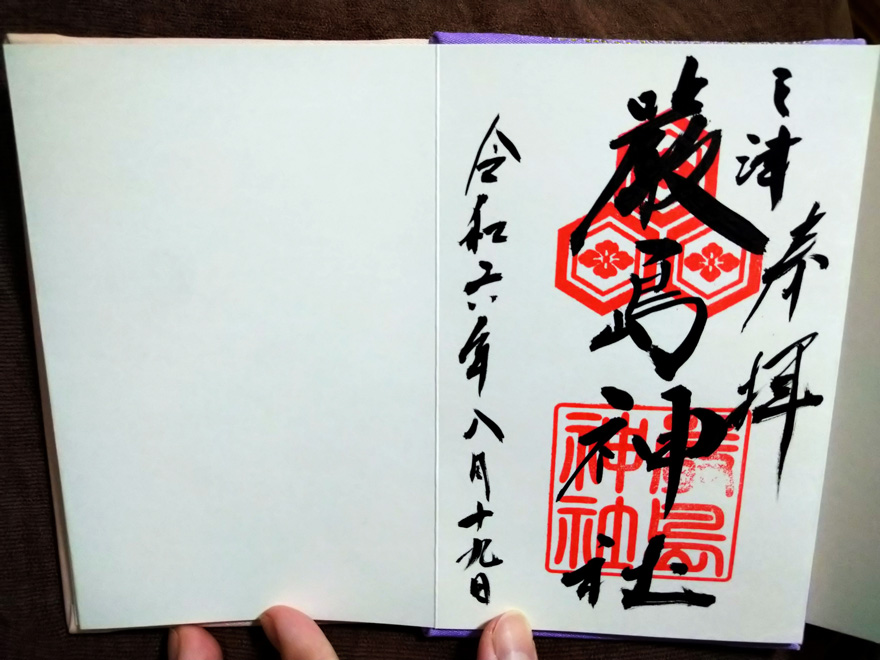 三津
奉拝
厳島神社
厳島
神社
令和六年八月十九日